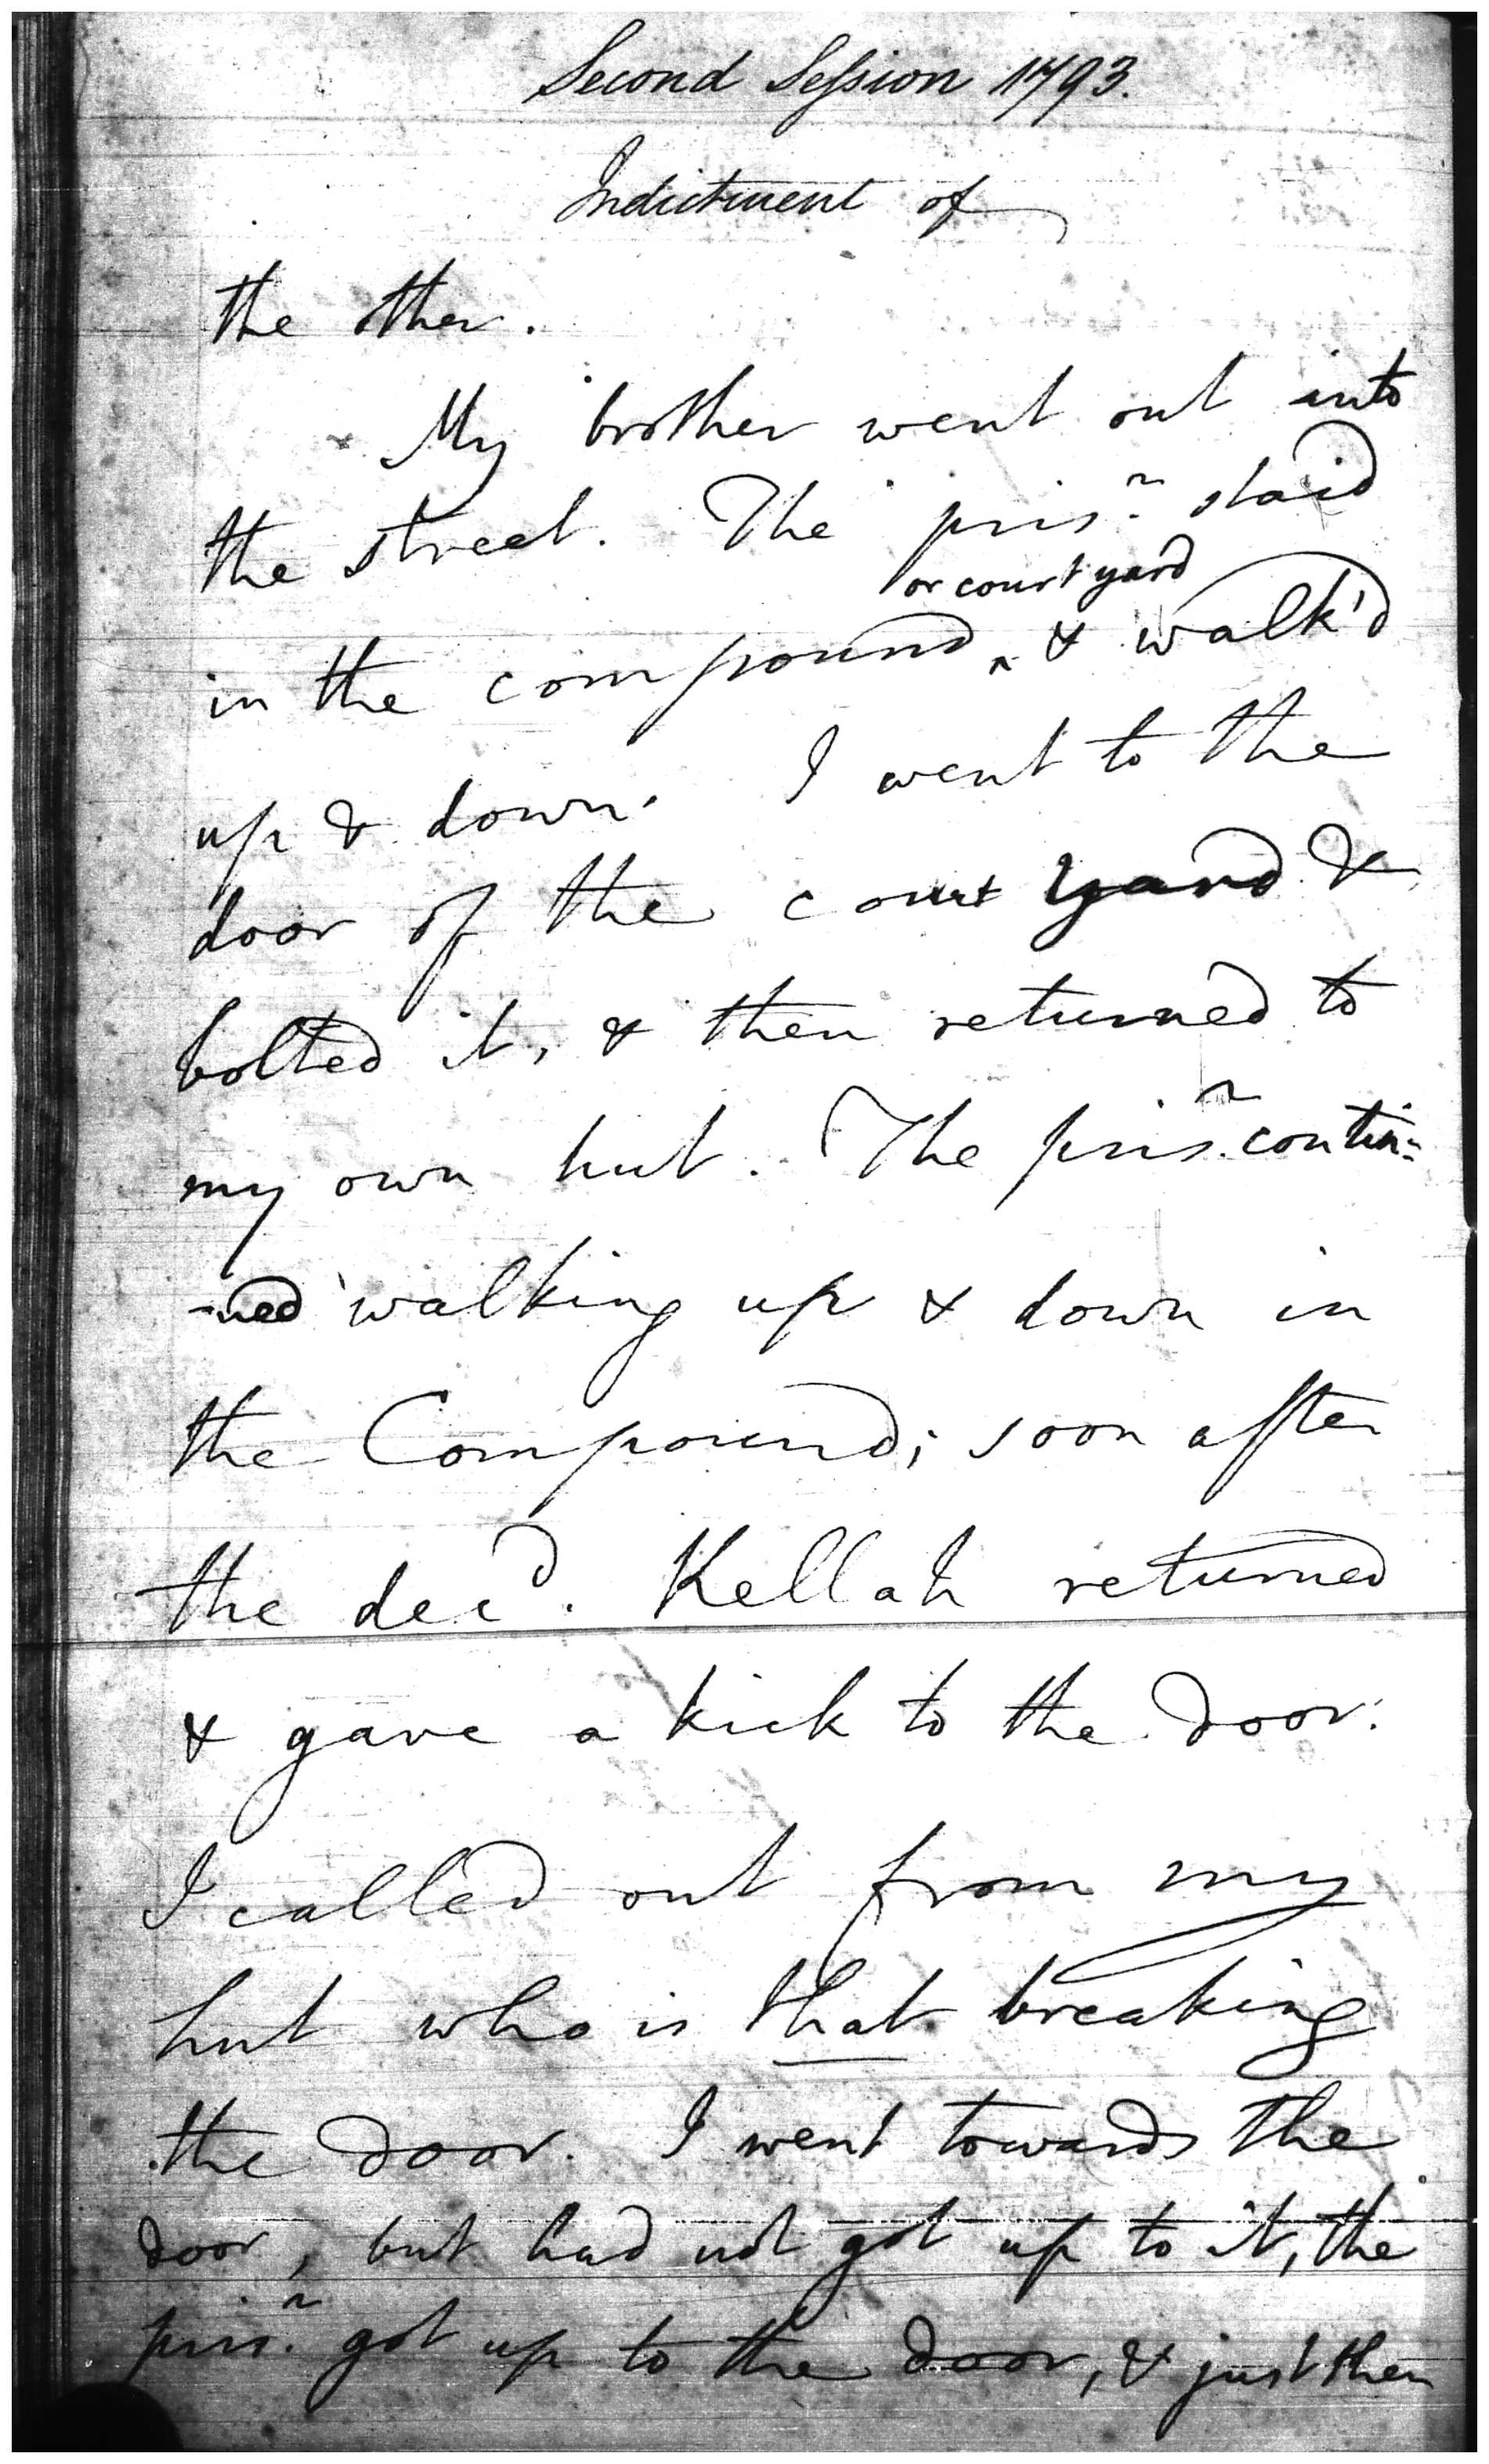 Second Session 1793.
Indictment of
the other.
My brother went out into
the street. The pris.n staid
or court yard
in the compound ^ & walk'd
up & down. I went to the
door of the court yard &
bolted it, & then returned to
my own hut. The pris.n contin=
-ued walking up & down in
the Compound; soon after
the dec.d Kellah returned
& gave a kick to the door:
I called out from my
hut who is that breaking
the door. I went towards the
door, but had not got up to it, the
pris.n got up to the door, & just then